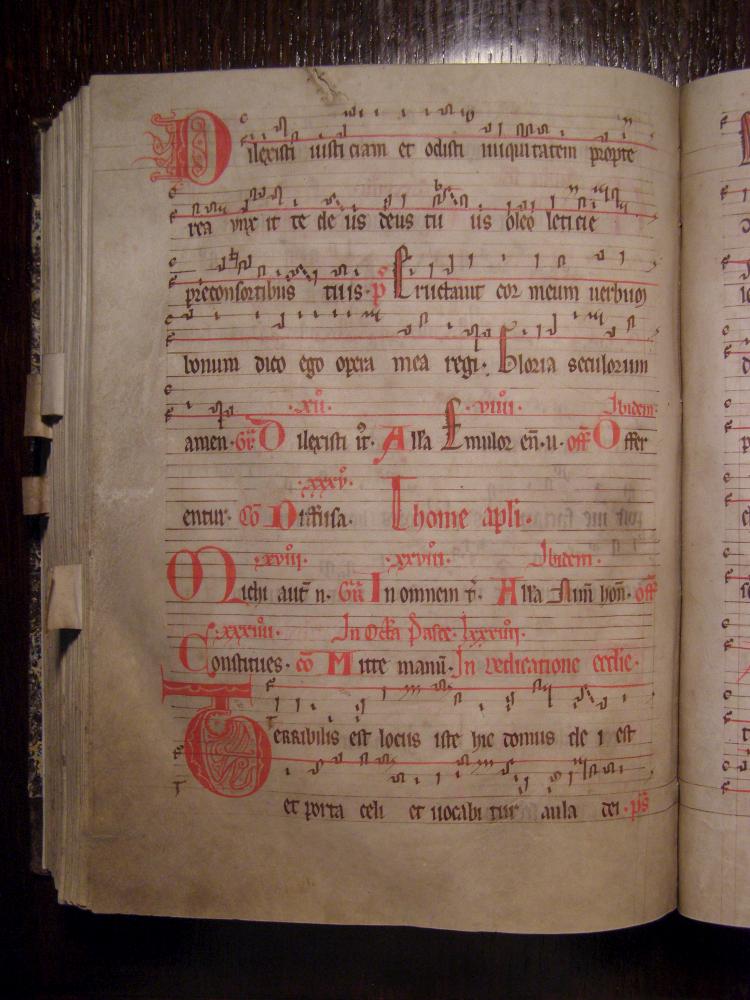 Dilexisti iusticiam et odisti iniquitatem propte
rea vnx it te de us deus tu us oleo leticie
preconsortibus tuis. p̄ Eructauit cor meum uerbum
bonum dico ego opera mea regi. Gloria seculorum
.xii. .viiii. Ibidem.
amen. Gr̄ Dilexisti it. Alla Emulor en̄. u. off Offer
.xxxv.
entur. Cō Diffusa. Thome apli.
.xviii. .xxviii. Ibidem.
Michi aut n. Gr̄ In omnem t. Alla Nim̄ hon̄. off
.xxxiiii. In Octa Pasce. lxxxiiii.
Constitues. cō Mitte manū. In dedicatione ecclie.
Terribilis est locus iste hic domus de i est
et porta celi et uocabi tur aula dei. ps̄